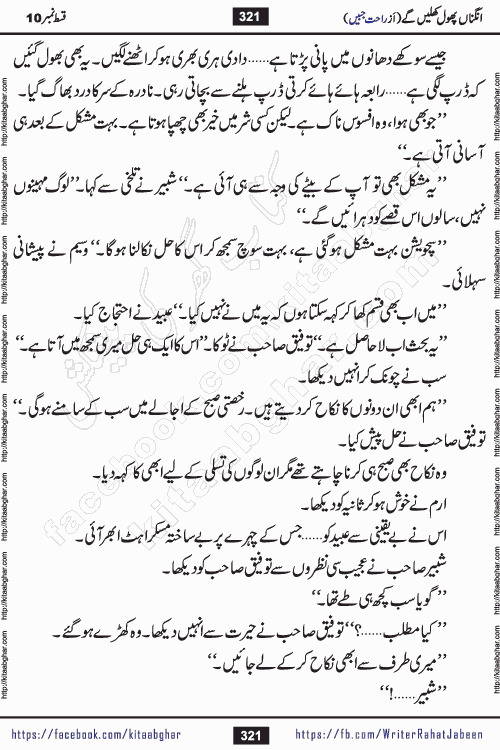 انگناں پھول کھلیں گے (از راحت جبیں)
321
قسط نمبر 10
جیسے سوکھے دھانوں میں پانی پڑتا ہے......دادی ہری بھری ہو کر اٹھنے لگیں۔ یہ بھی بھول گئیں
کہ ڈرپ لگی ہے......رابعہ ہائے ہائے کرتی ڈرپ ہلنے سے بچاتی رہی۔ نادرہ کے سر کا درد بھاگ گیا۔
’’جو بھی ہوا، وہ افسوس ناک ہے۔ لیکن کسی شر میں خیر بھی چھپا ہوتا ہے۔ بہت مشکل کے بعد ہی
آسانی آتی ہے۔‘‘
’’یہ مشکل بھی تو آپ کے بیٹے کی وجہ سے ہی آئی ہے۔‘‘ شبیر نے تلخی سے کہا۔ ’’لوگ مہینوں
نہیں، سالوں اس قصے کو دہرائیں گے۔‘‘
’’سچویشن بہت مشکل ہو گئی ہے، بہت سوچ سمجھ کر اس کا حل نکالنا ہو گا۔‘‘ وسیم نے پیشانی
سہلائی۔
’’میں اب بھی قسم کھا کر کہہ سکتا ہوں کہ یہ میں نے نہیں کیا۔‘‘ عبید نے احتجاج کیا۔
’’یہ بحث اب لاحاصل ہے۔‘‘ توفیق صاحب نے ٹوکا۔ ’’اس کا ایک ہی حل میری سمجھ میں آتا ہے۔‘‘
سب نے چونک کر انہیں دیکھا۔
’’ہم ابھی ان دونوں کا نکاح کر دیتے ہیں۔ رخصتی صبح کے اجالے میں سب کے سامنے ہو گی۔‘‘
توفیق صاحب نے حل پیش کیا۔
وہ نکاح بھی صبح ہی کرنا چاہتے تھے مگر ان لوگوں کی تسلی کے لیے ابھی کا کہہ دیا۔
ارم نے خوش ہو کر ثانیہ کو دیکھا۔
اس نے بے یقینی سے عبید کو......جس کے چہرے پر بے ساختہ مسکراہٹ ابھر آئی۔
شبیر صاحب نے عجیب سی نظروں سے توفیق صاحب کو دیکھا۔
’’گویا سب کچھ ہی طے تھا۔‘‘
’’کیا مطلب......؟‘‘ توفیق صاحب نے حیرت سے انہیں دیکھا۔ وہ کھڑے ہو گئے۔
’’میری طرف سے ابھی نکاح کر کے لے جائیں۔‘‘
’’شبیر......!‘‘
https://facebook.com/kitaabghar
321
https://fb.com/WriterRahatJabeen
http://kitaabghar.com
facebook.com/kitaabghar
kitaabghar.com